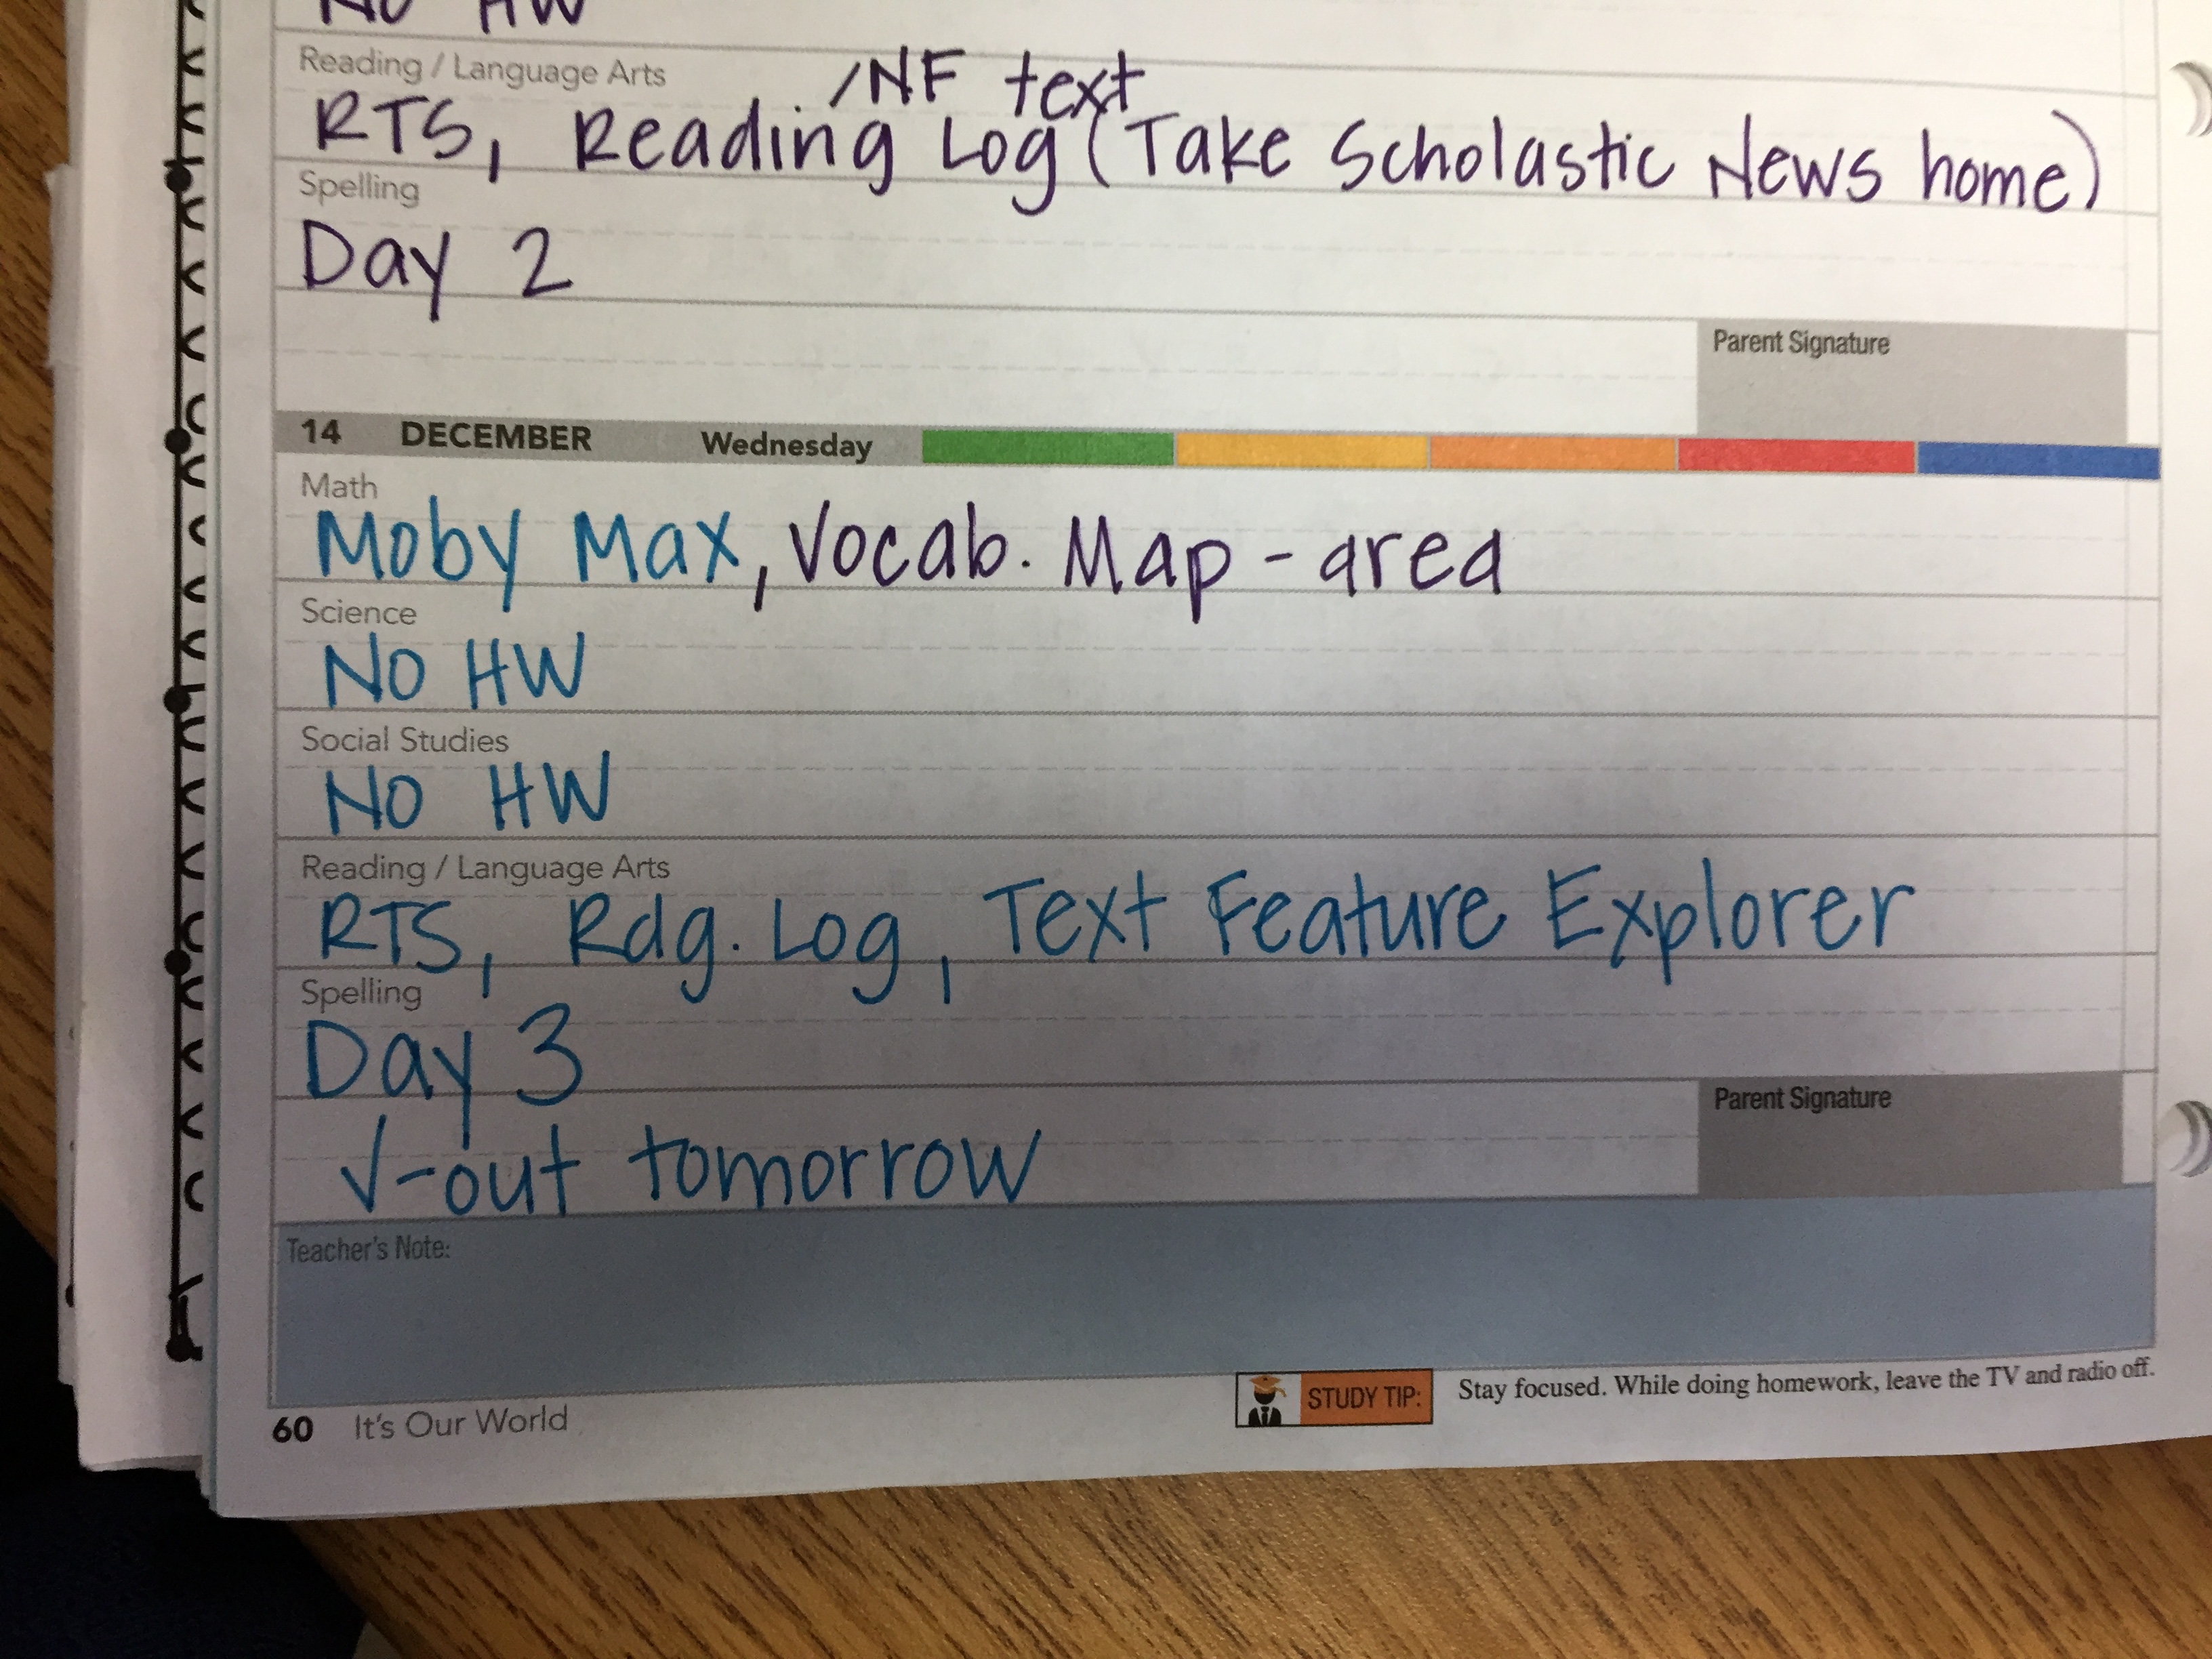 No HW
Reading / Language Arts
/NF text
RTS, Reading Log (Take Scholastic News home)
Spelling
Day 2
Parent Signature
14 DECEMBER Wednesday
Math
Moby Max, Vocab. Map - area
Science
No HW
Social Studies
No HW
Reading / Language Arts
RTS, Rdg. Log, Text Feature Explorer
Spelling
Day 3
Parent Signature
√-out tomorrow
Teacher's Note:
STUDY TIP: Stay focused. While doing homework, leave the TV and radio off.
60 It's Our World